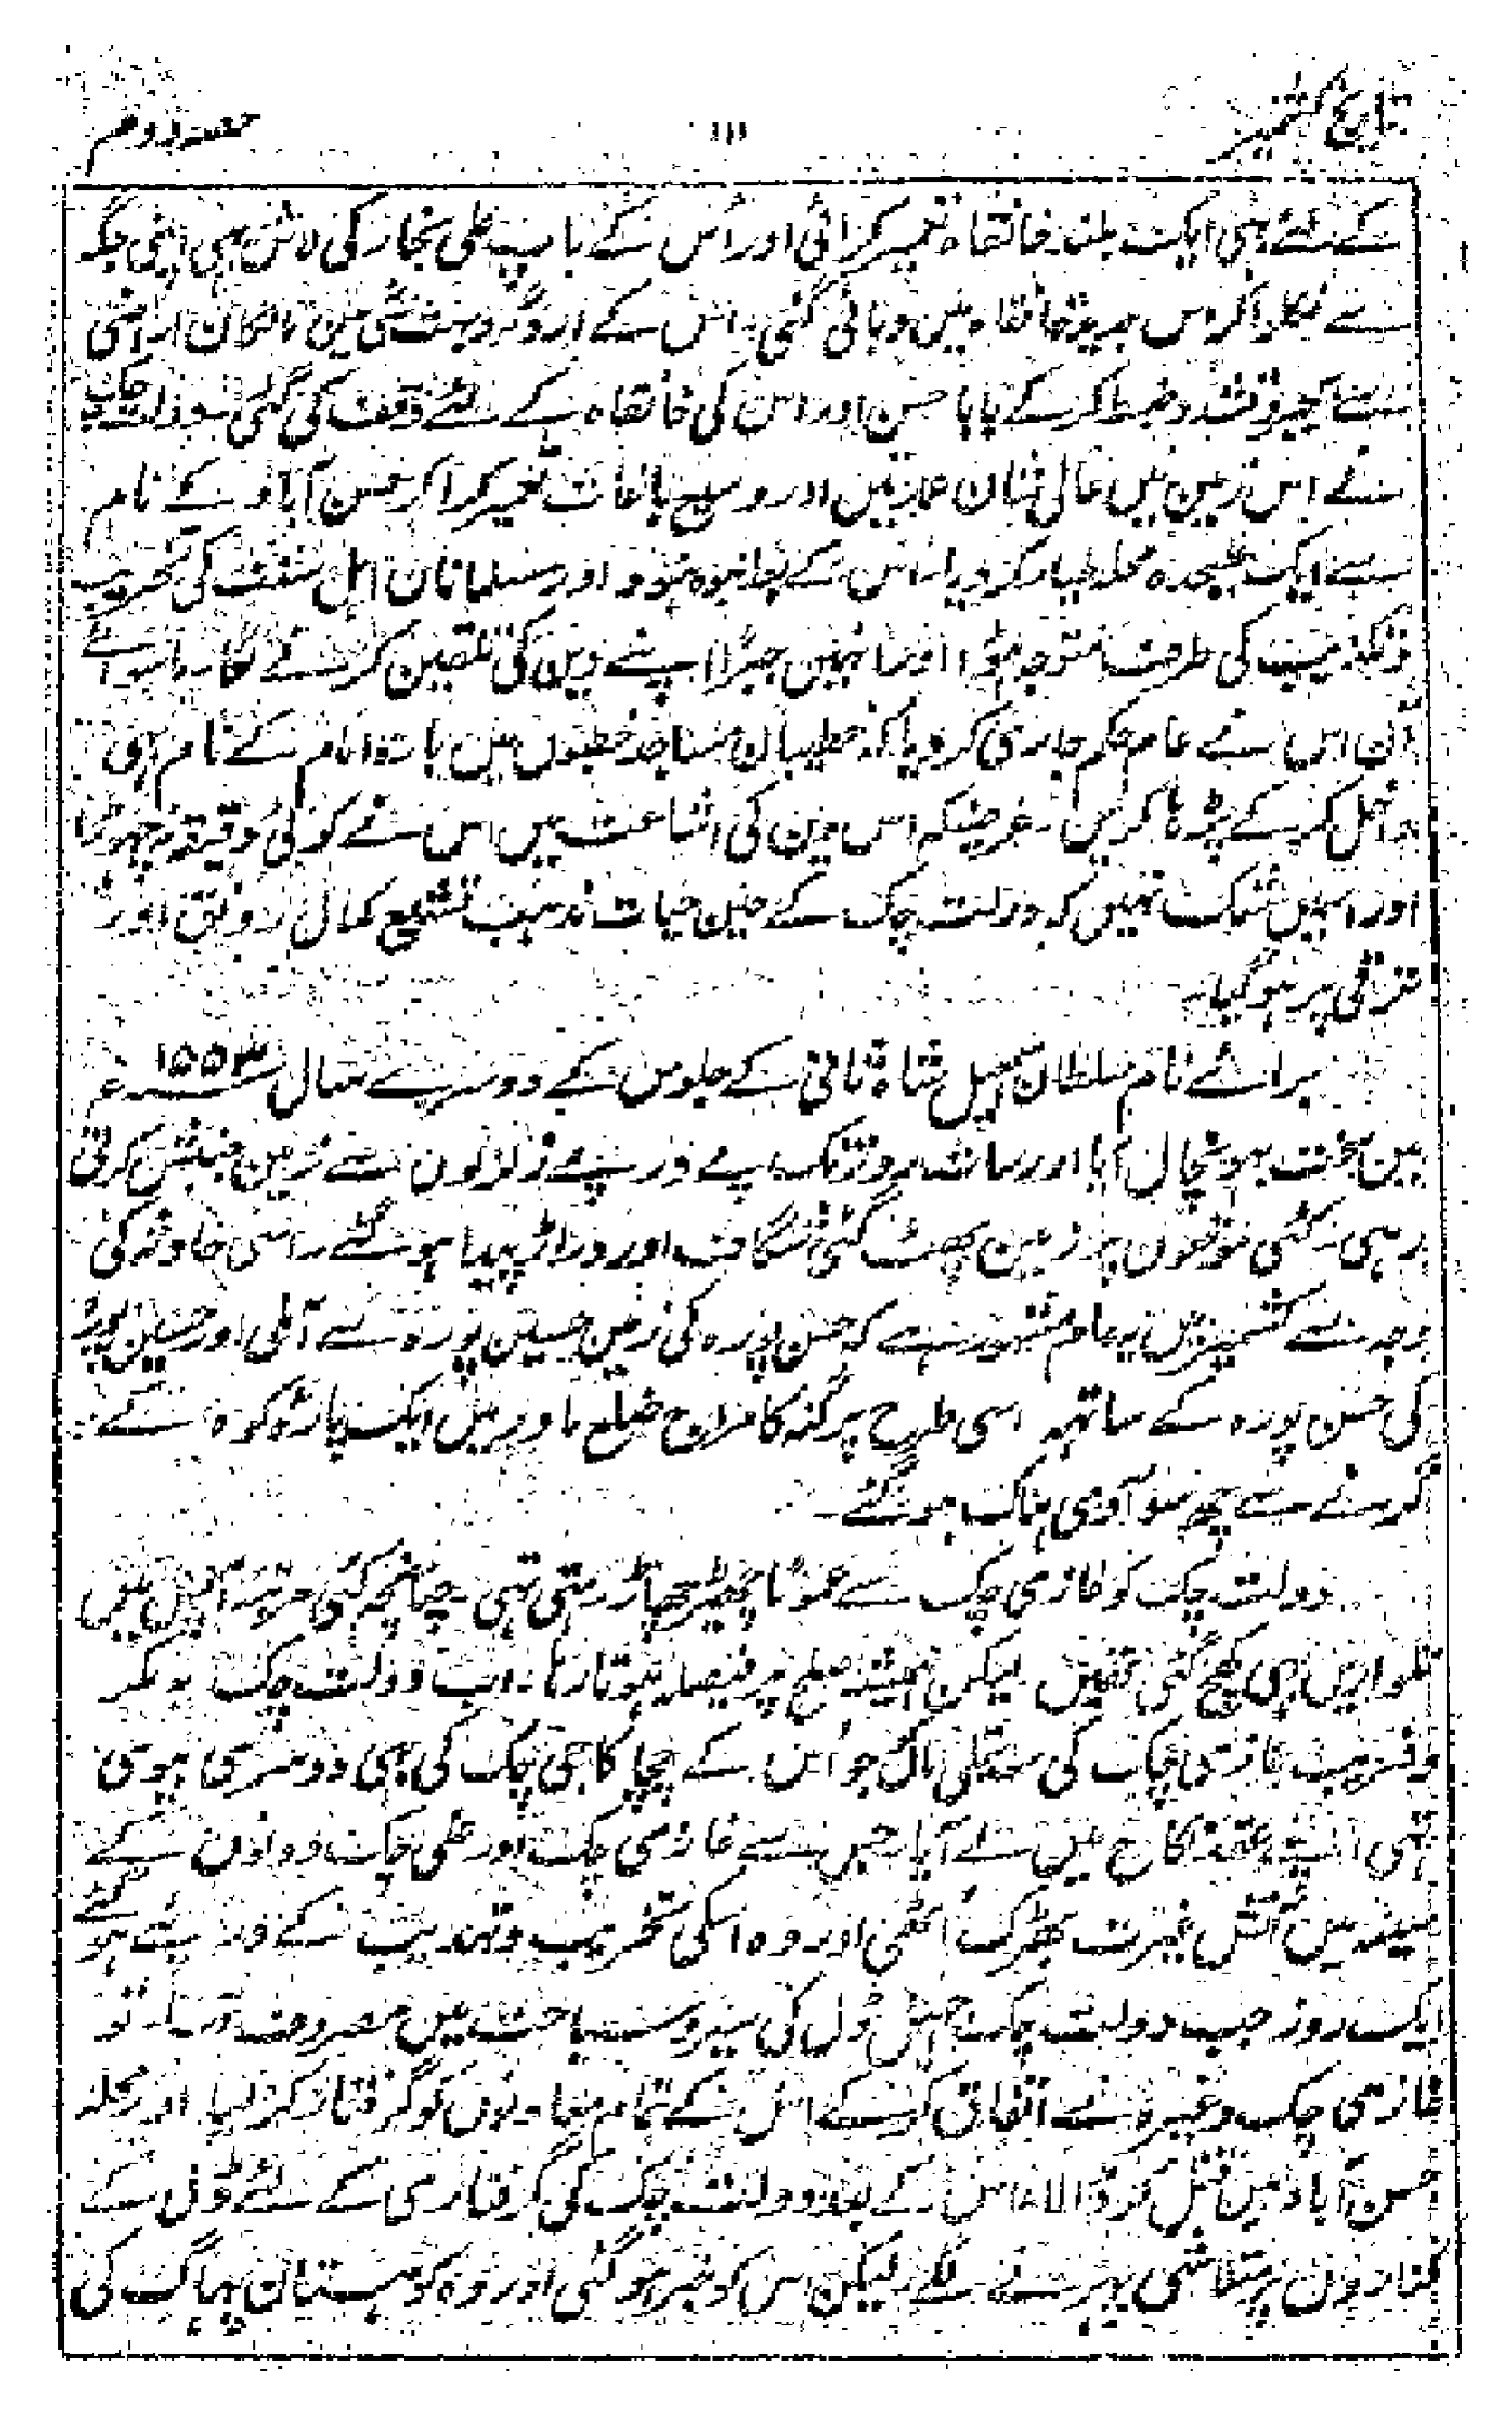 تاریخ کشمیر ۱۱۱ حصہ دوم
کے لئے بھی ایک بلند خانقاہ تعمیر کرائی اور اُس کے باپ علی نجار کی لاش بھی اپنی جگہ
سے نکلوا کر اس جدید خانقاہ میں دبائی گئی۔ اس کے اردگرد بہت سی زمین مالکان اراضی
سے بجبر و تشدد ضبط کر کے بابا حسن اور اس کی خانقاہ کے لئے وقف کی گئی۔ دولت چک
نے اس زمین میں عالی شان عمارتیں اور وسیع باغات تعمیر کرا کر حسن آباد کے نام
سے ایک علیحدہ محلہ طیار کر دیا۔ اس کے بعد وہ ہنود اور مسلمانان اہل سنت کی تخریب
و تکذیب کی طرف متوجہ ہوا۔ اور انہیں جبراً اپنے دین کی تلقین کرنے لگا۔ ماسوائے
ان اس نے عام حکم جاری کر دیا کہ خطیبان مساجد خطبوں میں بارہ امام کے نام بھی
داخل کر کے پڑہا کریں۔ غرضیکہ اس دین کی اشاعت میں اس نے کوئی دقیقہ نہ چھوڑا
اور اسمیں شک نہیں کہ دولت چک کے حین حیات مذہب تشیع کمال رونق اور
ترقی پر ہو گیا۔
برائے نام سلطان اسمٰعیل شاہ ثانی کے جلوس کے دوسرے سال ۱۵۵۳ء
میں سخت بھونچال آیا اور سات روز تک پے در پے زلزلوں سے زمین جنبش کرتی
رہی۔ کئی موقعوں پر زمین پھٹ گئی شگاف اور دراڑ پیدا ہو گئے۔ اس حادثہ کی
وجہ سے کشمیر میں یہ عام مشہور ہے کہ حسن پورہ کی زمین حسین پورہ سے آملی اور حسین پورہ
کی حسن پورہ کے ساتھ۔ اسی طرح پرگنہ کامراج ضلع ماور میں ایک پارۂ کوہ کے
گرنے سے چھ سو آدمی ہلاک ہو گئے۔
دولت چک کو غازی چک سے عموماً چھیڑ چھاڑ رہتی تھی۔ چنانچہ کئی مرتبہ آپس میں
تلواریں بھی کھچ گئی تھیں۔ لیکن ہمیشہ صلح پر فیصلہ ہوتا رہا۔ اب دولت چک بہ مکر
و فریب غازی چک کی سگی ماں جو اس کے چچا کاجی چک کی بھی دوسری بیوی
تھی اپنے عقد نکاح میں لے آیا۔ جس سے غازی چک اور علی چک دونوں کے
سینہ میں آتش غیرت بھڑک اُٹھی اور وہ اسکی تخریب و تہدیب کے درپئے ہو گئے
ایک روز جب دولت چک جھیل ڈل کی سیر و سیاحت میں مصروف تھا۔ تو
غازی چک وغیرہ نے اتفاق کر کے اس کے تمام معاونوں کو گرفتار کر لیا اور محلہ
حسن آباد میں قتل کر ڈالا۔ اس کے بعد دولت چک کی گرفتاری کے لئے ڈل کے
کناروں پر متلاشی پھرنے لگے۔ لیکن اس کو خبر ہو گئی اور وہ کوہستان پہاگ کی